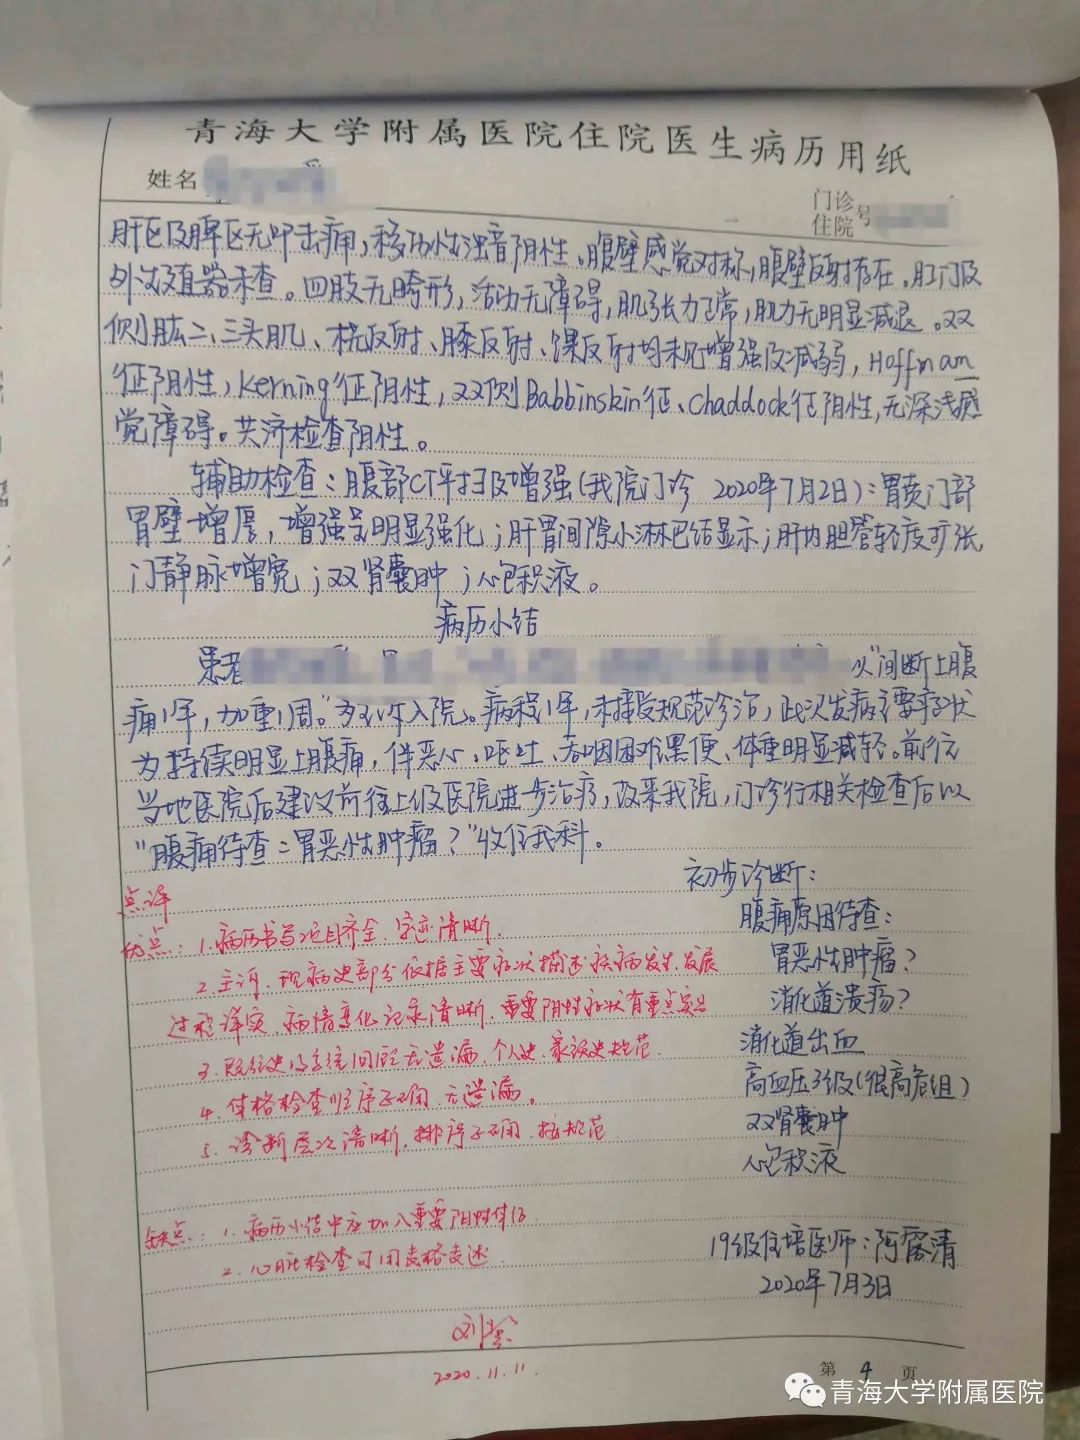 青海大学附属医院住院医生病历用纸
姓名
门诊
住院号
肝区及脾区无叩击痛，移动性浊音阴性。腹壁感觉对称，腹壁反射存在。肛门及
外生殖器未查。四肢无畸形，活动无障碍，肌张力正常，肌力无明显减退。双
侧肱二、三头肌、桡反射、膝反射、踝反射均未见增强及减弱，Hoffmam
征阴性，Kerning征阴性，双侧Babbinskin征、Chaddock征阴性，无深浅感
觉障碍。共济检查阴性。
辅助检查：腹部CT平扫及增强(我院门诊 2020年7月2日)：胃贲门部
胃壁增厚，增强呈明显强化；肝胃间隙小淋巴结显示；肝内胆管轻度扩张
门静脉增宽；双肾囊肿；心包积液。
病历小结
患者 以"间断上腹
痛1年，加重1周。"为主诉入院。病程1年，未接受规范诊治，此次发病主要症状
为持续明显上腹痛，伴恶心、呕吐、吞咽困难黑便、体重明显减轻。前往
当地医院后建议前往上级医院进步治疗，改来我院，门诊行相关检查后以
"腹痛待查：胃恶性肿瘤？"收住我科。
初步诊断：
腹痛原因待查：
胃恶性肿瘤？
消化道溃疡？
消化道出血
高血压3级(很高危组)
双肾囊肿
心包积液
19级住培医师：阿露清
2020年7月3日
点评
优点：1.病历书写项目齐全，字迹清晰.
2.主诉、现病史部分依据主要症状描述疾病发生、发展
过程详实，病情变化记录清晰，重要阴性症状有重点突出
3.既往史及系统回顾无遗漏，个人史、家族史规范.
4.体格检查顺序正确，无遗漏。
5.诊断层次清晰，排序正确，较规范.
缺点：1.病历小结中应加入重要阴性体征.
2.心脏检查可用表格表述.
2020.11.11.
第 4 页
青海大学附属医院